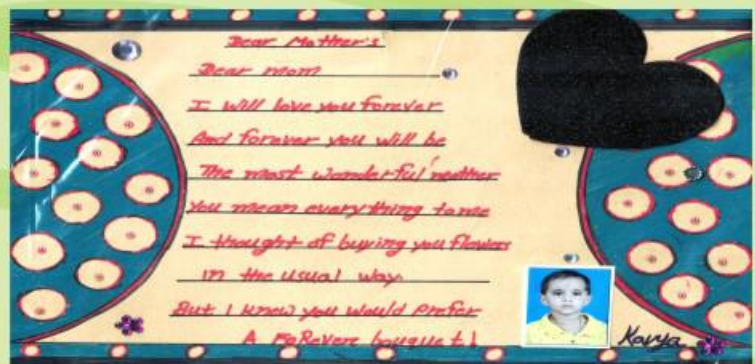 Dear Mother's
Dear mom
I will love you forever
And forever you will be
The most wonderful mother
You mean everything to me
I thought of buying you flowers
in the usual way.
But I knew you would prefer
A FoRevere bouquet!
Kavya